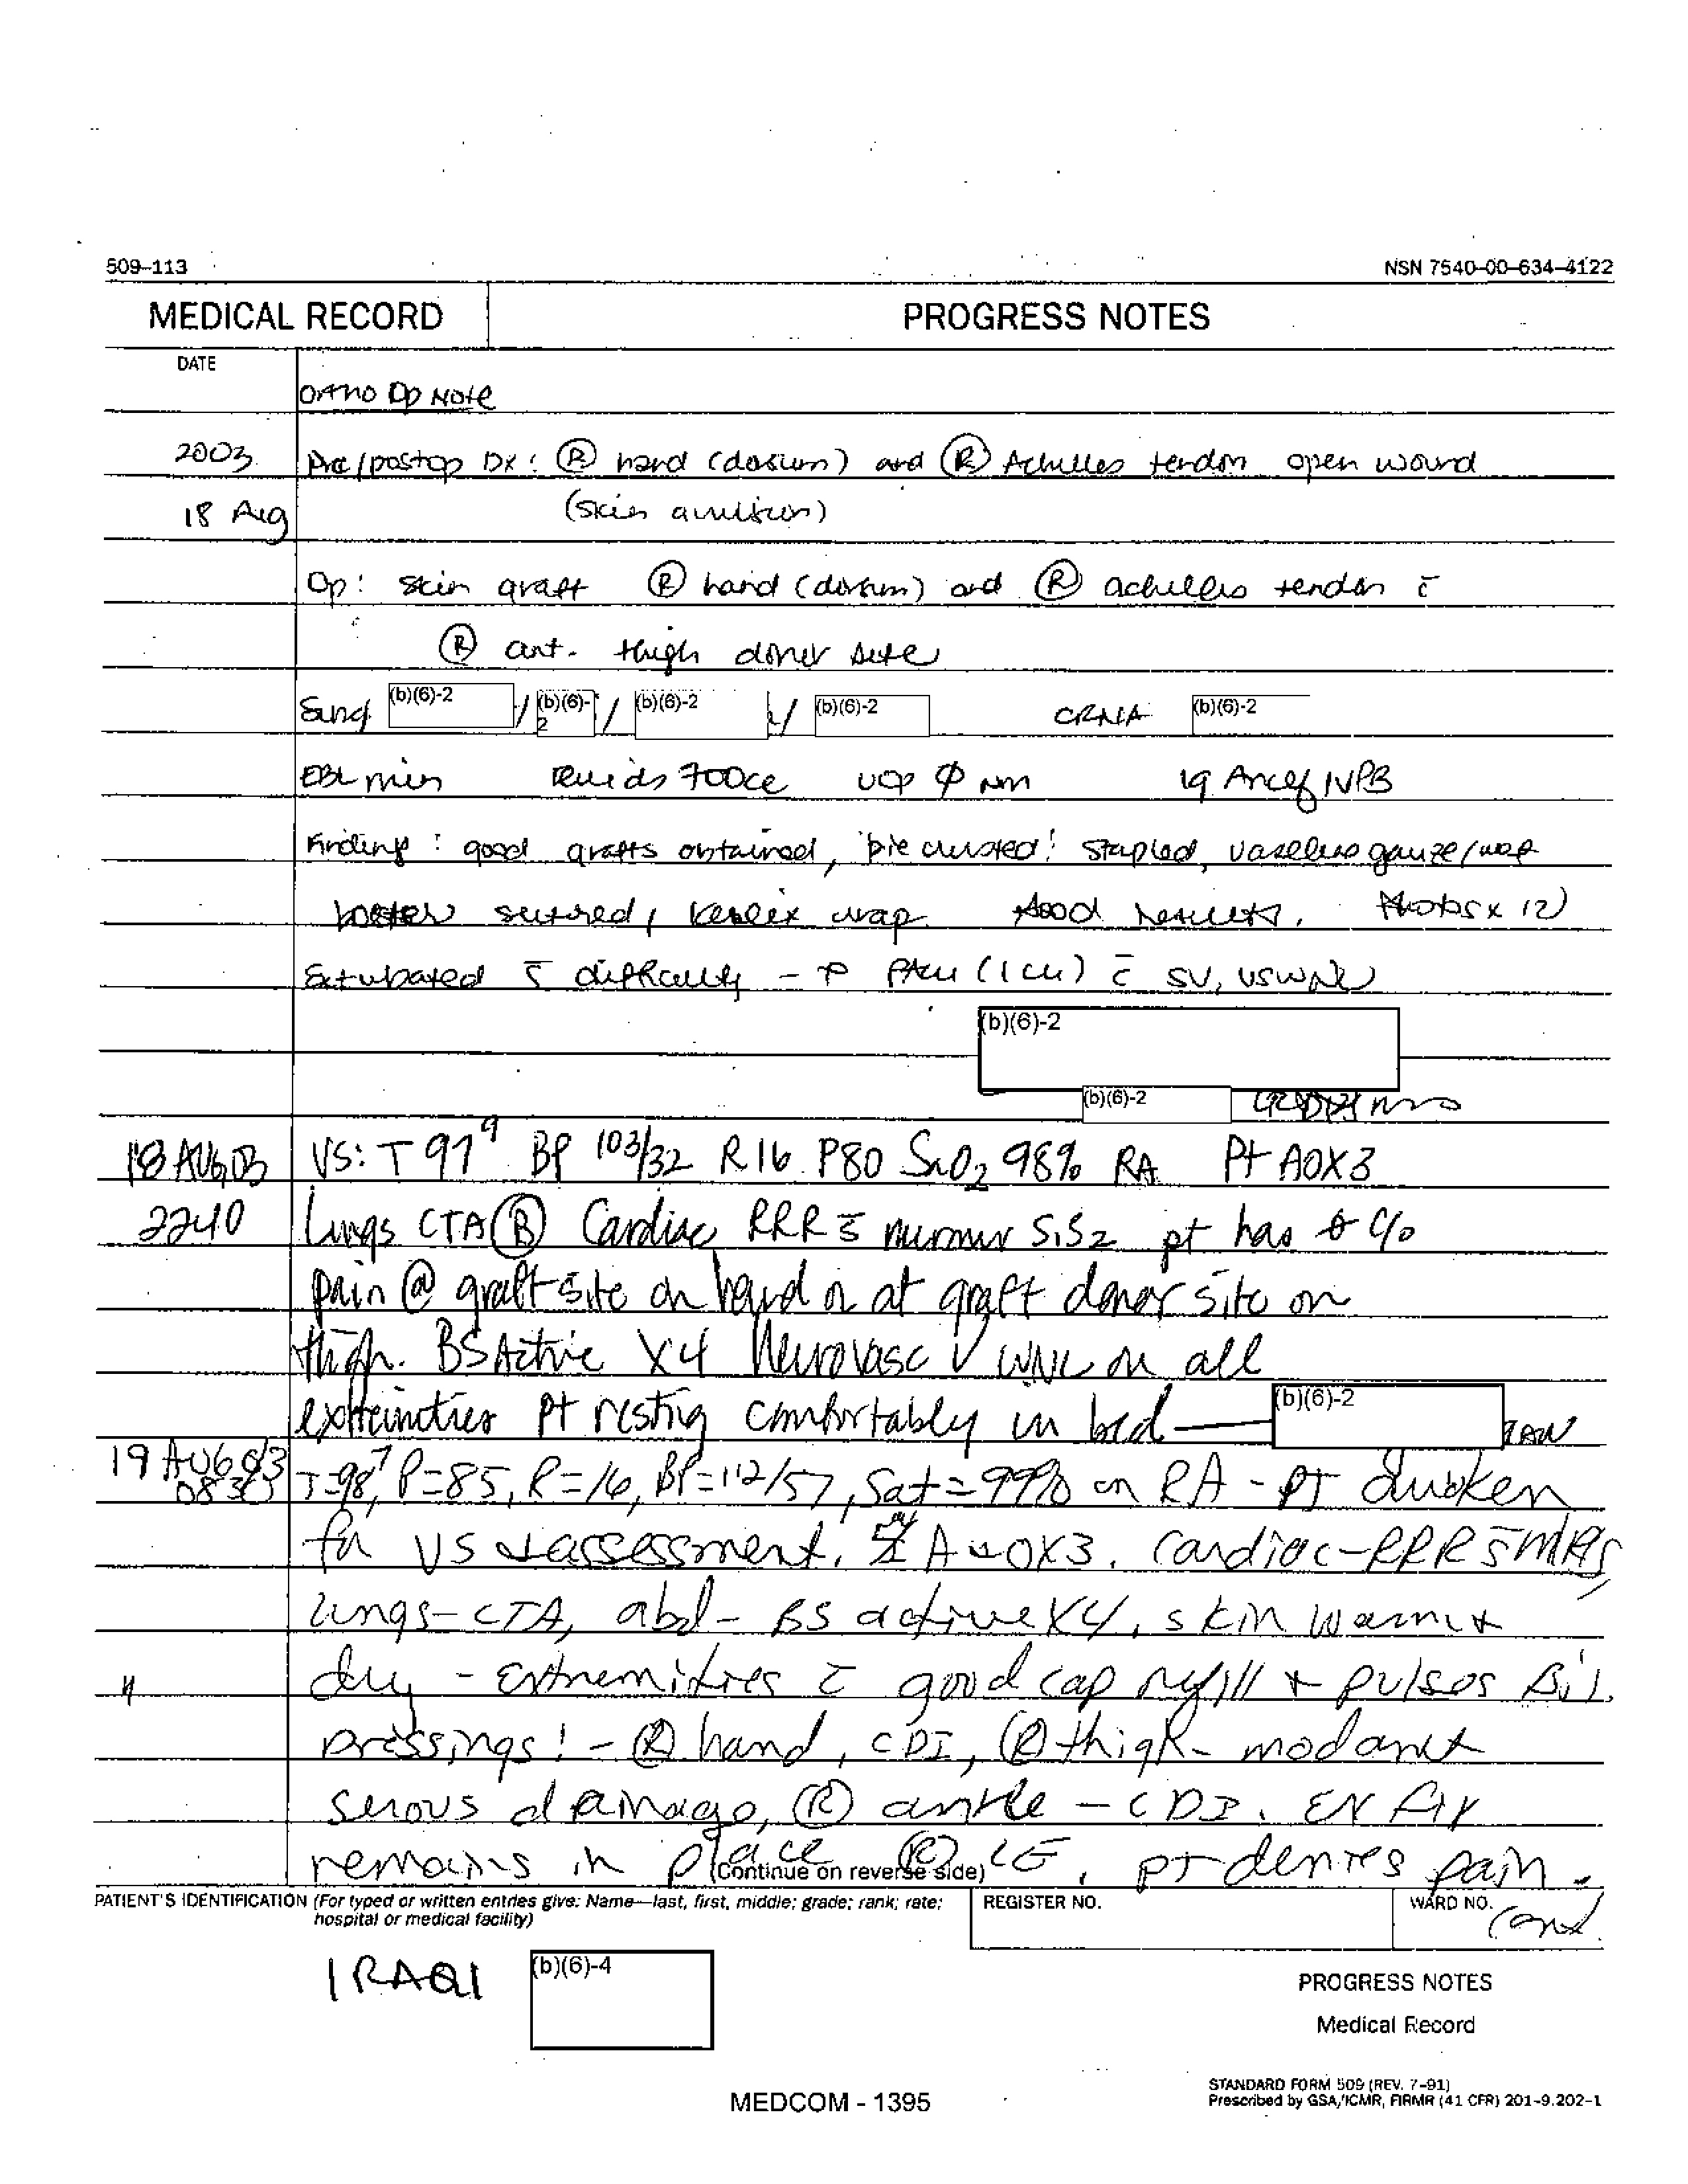 509-113 NSN 7540-00-634-4122
MEDICAL RECORD PROGRESS NOTES
DATE
Ortho Op Note
2003 Pre/postop Dx: Ⓡ hand (dorsum) and Ⓡ Achilles tendon open wound
18 Aug (skin avulsion)
Op: skin graft Ⓡ hand (dorsum) and Ⓡ achilles tendon c̄
Ⓡ ant. thigh donor site
Surg (b)(6)-2 / (b)(6)-2 / (b)(6)-2 / (b)(6)-2 CRNA (b)(6)-2
EBL min fluids 700cc UOP Φ 1g Ancef IVPB
Finding: good grafts obtained, 'pie crusted' stapled, vaseline gauze/
bolster sutured, kerlix wrap. Good results. Photos x 12)
Extubated s̄ difficulty - → PACU (ICU) c̄ SV, VSWNL
(b)(6)-2
(b)(6)-2
18 AUG 03 VS: T 97⁹ BP 103/32 R16 P80 SaO₂ 98% RA Pt AOX3
2240 Lungs CTA Ⓑ Cardiac RRR s̄ murmur S1S2 pt has ɵ c/o
pain @ graft site on hand or at graft donor site on
thigh. BS Active X4 Neurovasc √ WNL on all
extremities Pt resting comfortably in bed — (b)(6)-2
19 AUG 03 0830 T=98⁷, P=85, R=16, BP=112/57, Sat=99% on RA - Pt awoken
for VS + assessment. A+OX3. Cardiac-RRR s̄ MRG,
lungs-CTA, abd- BS active X4, skin warm +
" dry - Extremities c̄ good cap refill + pulses Bil.
Dressings: - Ⓡ hand, CDI, Ⓡ thigh- mod amt
serous drainage, Ⓡ ankle - CDI. EX fix
remains in place Ⓡ LE, pt denies pain.
(Continue on reverse side)
PATIENT'S IDENTIFICATION (For typed or written entries give: Name—last, first, middle; grade; rank; rate; hospital or medical facility) REGISTER NO. WARD NO.
cont.
IRAQI (b)(6)-4
PROGRESS NOTES
Medical Record
STANDARD FORM 509 (REV. 7-91)
Prescribed by GSA/ICMR, FIRMR (41 CFR) 201-9.202-1
MEDCOM - 1395